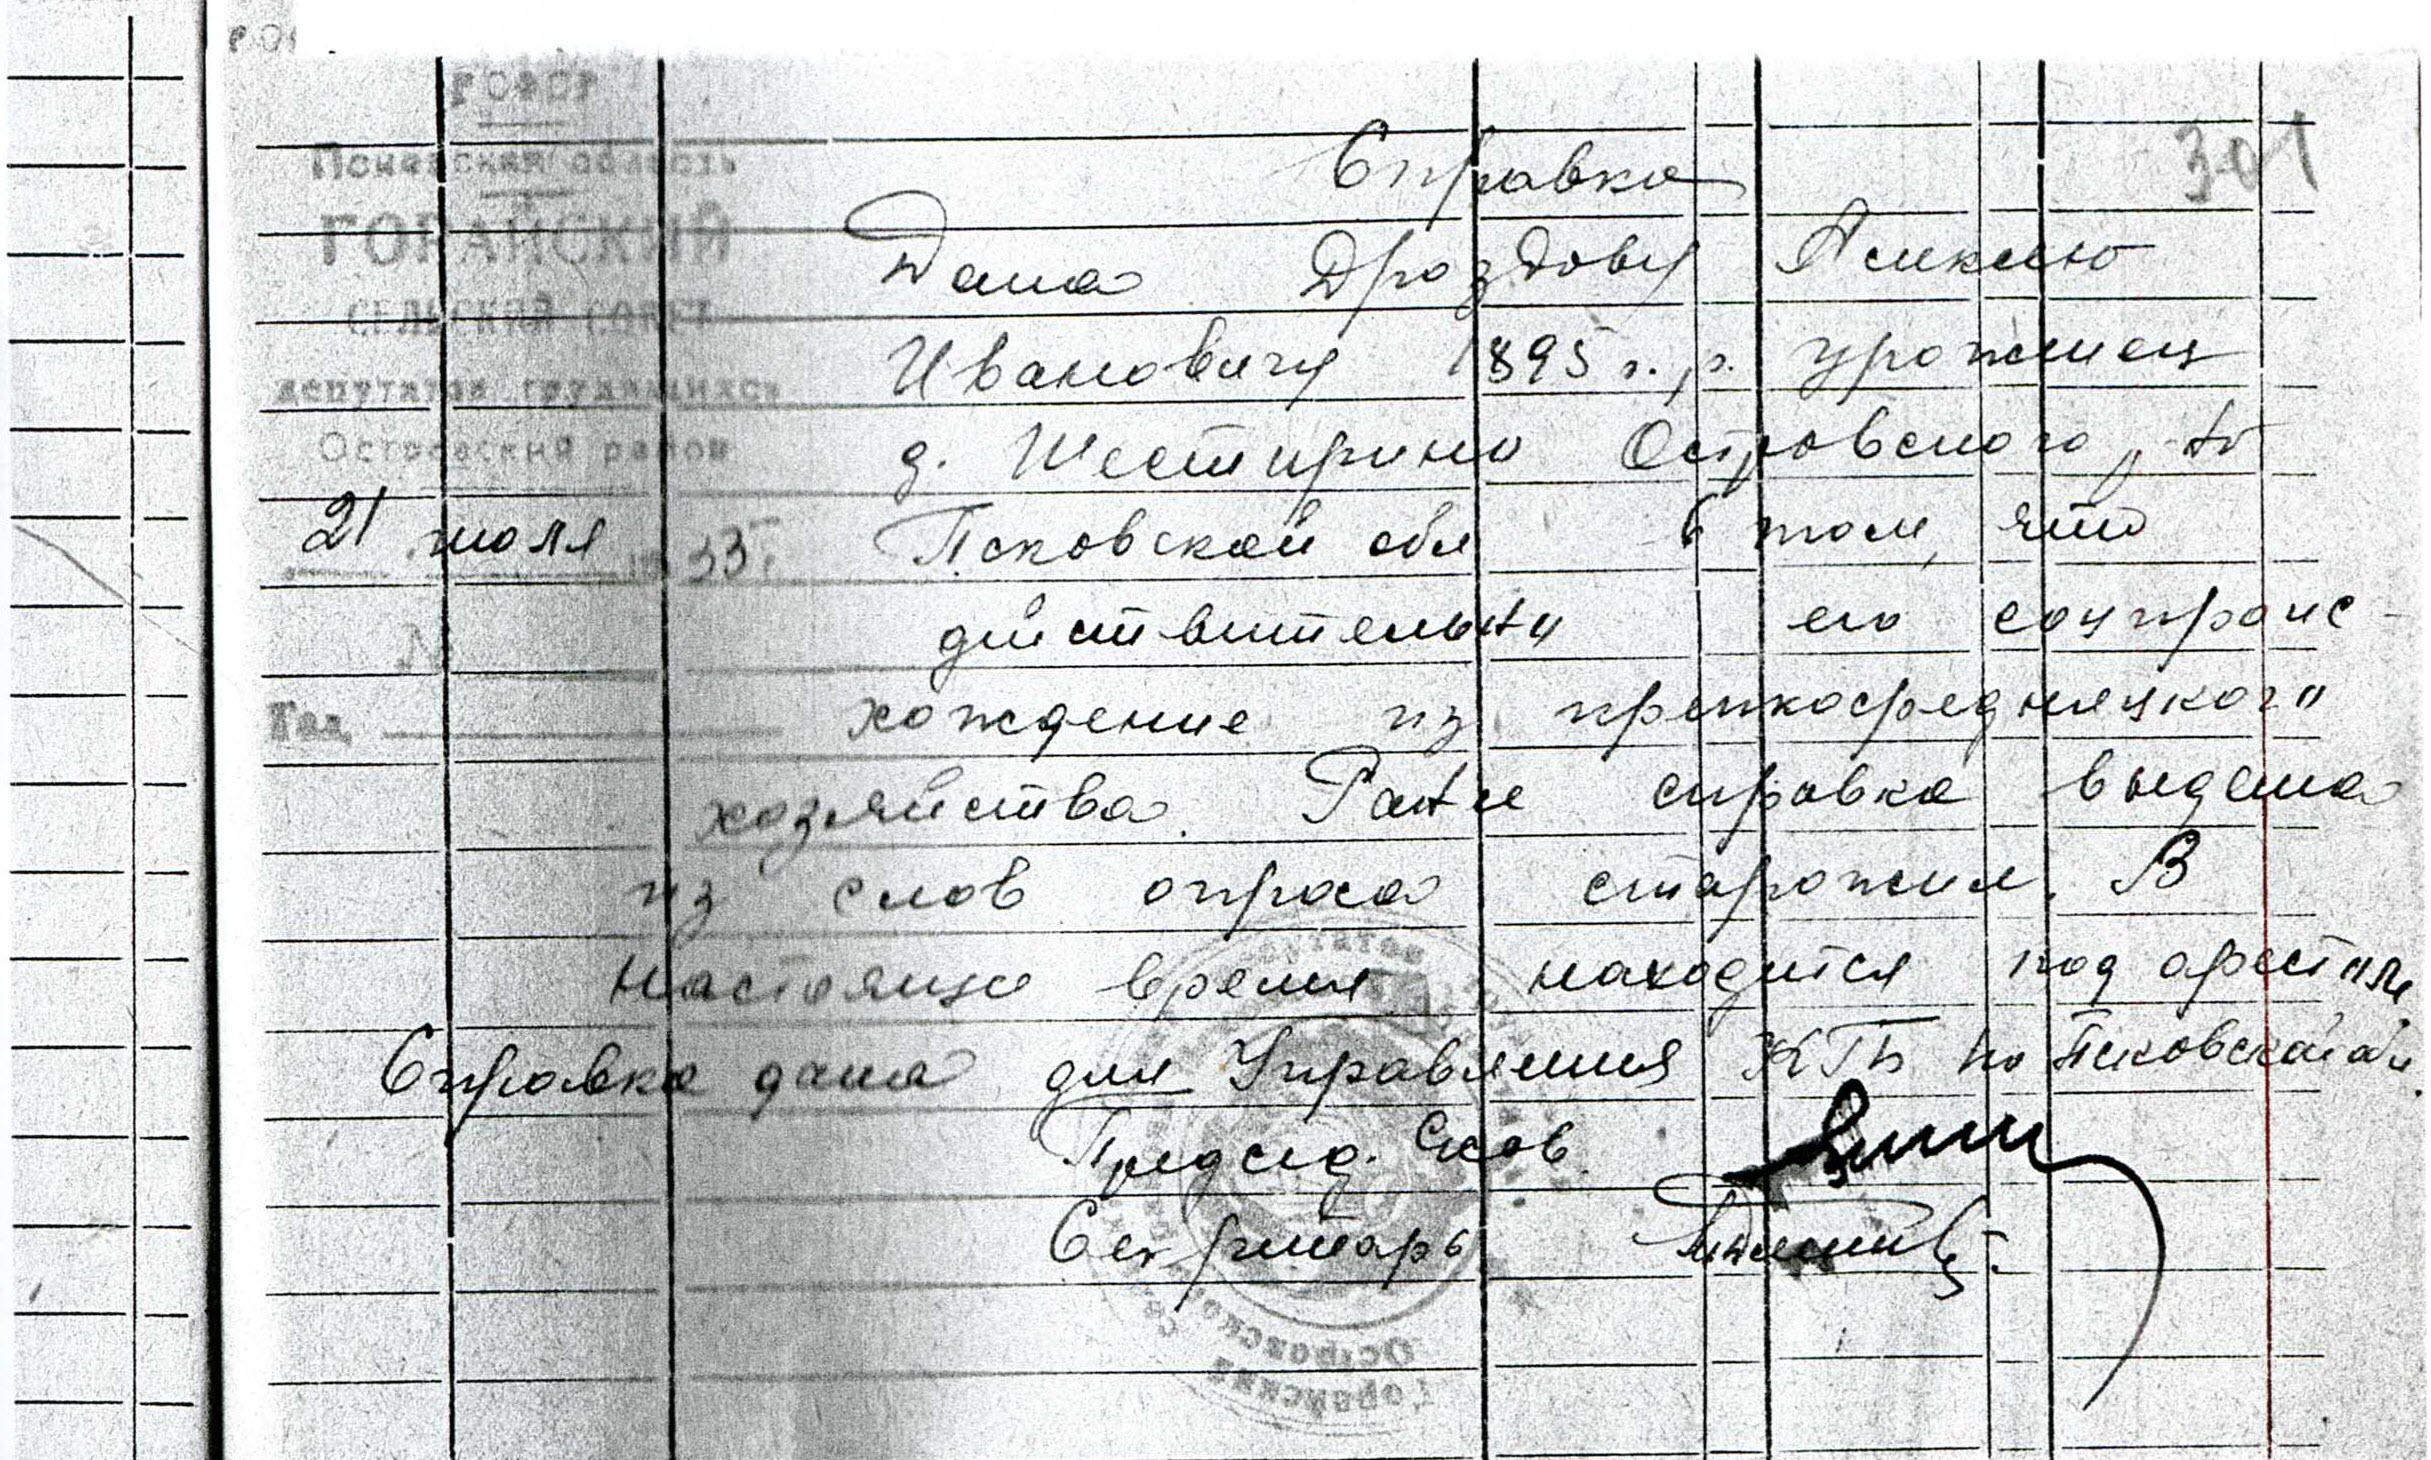 РСФСР
301
Псковская область
ГОРАЙСКИЙ
СЕЛЬСКИЙ СОВЕТ
депутатов трудящихся
Островский район
21 июля 1955 г.
№
Гор.
Справка
Дана Дроздову Алексею
Ивановичу 1895 г. р. уроженец
д. Шестирино Островского р-на
Псковской обл в том, что
действительно его соцпроис-
хождение из крепкосредняцкого
хозяйства. справка выдана
из слов опроса старожил. В
настоящее время находится под арестом.
Справка дана для Управления КГБ по Псковской обл.
Председ. с/сов.
Секретарь
депутатов
Островского
Горайский